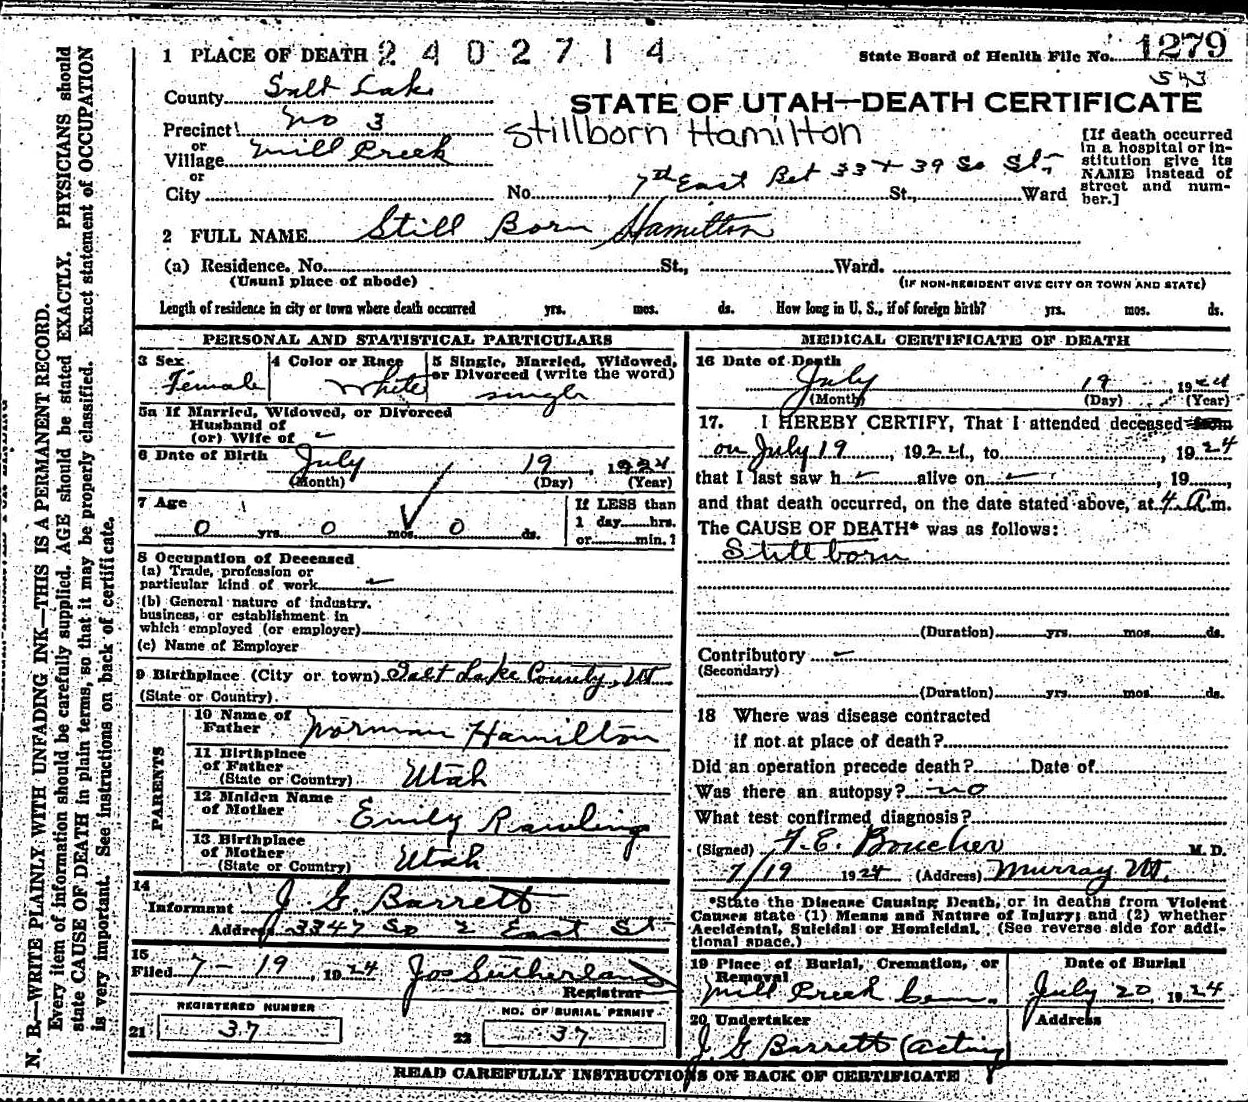 1 PLACE OF DEATH 2 4 0 2 7 1 4
State Board of Health File No. 1279
543
County Salt Lake
STATE OF UTAH—DEATH CERTIFICATE
Precinct No 3
Stillborn Hamilton
or
Village Mill Creek
or
City
No. 7th East Bet 33 + 39 So St., Ward
[If death occurred
in a hospital or in-
stitution give its
NAME instead of
street and num-
ber.]
2 FULL NAME Still Born Hamilton
(a) Residence. No. St., Ward.
(Usual place of abode)
(IF NON-RESIDENT GIVE CITY OR TOWN AND STATE)
Length of residence in city or town where death occurred yrs. mos. ds. How long in U. S., if of foreign birth? yrs. mos. ds.
PERSONAL AND STATISTICAL PARTICULARS
3 Sex
Female
4 Color or Race
White
5 Single, Married, Widowed,
or Divorced (write the word)
single
5a If Married, Widowed, or Divorced
Husband of
(or) Wife of
6 Date of Birth July 19, 1924
(Month) (Day) (Year)
7 Age
0 yrs. 0 mos. 0 ds.
If LESS than
1 day hrs.
or min.?
8 Occupation of Deceased
(a) Trade, profession or
particular kind of work
(b) General nature of industry,
business, or establishment in
which employed (or employer)
(c) Name of Employer
9 Birthplace (City or town) Salt Lake County, Ut
(State or Country)
PARENTS
10 Name of
Father Norman Hamilton
11 Birthplace
of Father
(State or Country) Utah
12 Maiden Name
of Mother Emily Rawlings
13 Birthplace
of Mother
(State or Country) Utah
14
Informant J G Barrett
Address 3347 So 2 East St
15
Filed 7-19, 1924 Jos Sutherland
Registrar
REGISTERED NUMBER
21 37
NO. OF BURIAL PERMIT
22 37
MEDICAL CERTIFICATE OF DEATH
16 Date of Death
July 19 1924
(Month) (Day) (Year)
17. I HEREBY CERTIFY, That I attended deceased from
on July 19, 1924, to , 1924
that I last saw h alive on , 19 ,
and that death occurred, on the date stated above, at 4 A m.
The CAUSE OF DEATH* was as follows:
Stillborn
(Duration) yrs. mos. ds.
Contributory
(Secondary)
(Duration) yrs. mos. ds.
18 Where was disease contracted
if not at place of death?
Did an operation precede death? Date of
Was there an autopsy? no
What test confirmed diagnosis?
(Signed) F. E. Boucher M. D.
7/19 1924 (Address) Murray Ut.
*State the Disease Causing Death, or in deaths from Violent
Causes state (1) Means and Nature of Injury; and (2) whether
Accidental, Suicidal or Homicidal. (See reverse side for addi-
tional space.)
19 Place of Burial, Cremation, or
Removal
Mill Creek Cem.
Date of Burial
July 20, 1924
20 Undertaker
J G Barrett (acting)
Address
READ CAREFULLY INSTRUCTIONS ON BACK OF CERTIFICATE
N. B.—WRITE PLAINLY WITH UNFADING INK—THIS IS A PERMANENT RECORD.
Every item of information should be carefully supplied. AGE should be stated EXACTLY. PHYSICIANS should
state CAUSE OF DEATH in plain terms, so that it may be properly classified. Exact statement of OCCUPATION
is very important. See instructions on back of certificate.